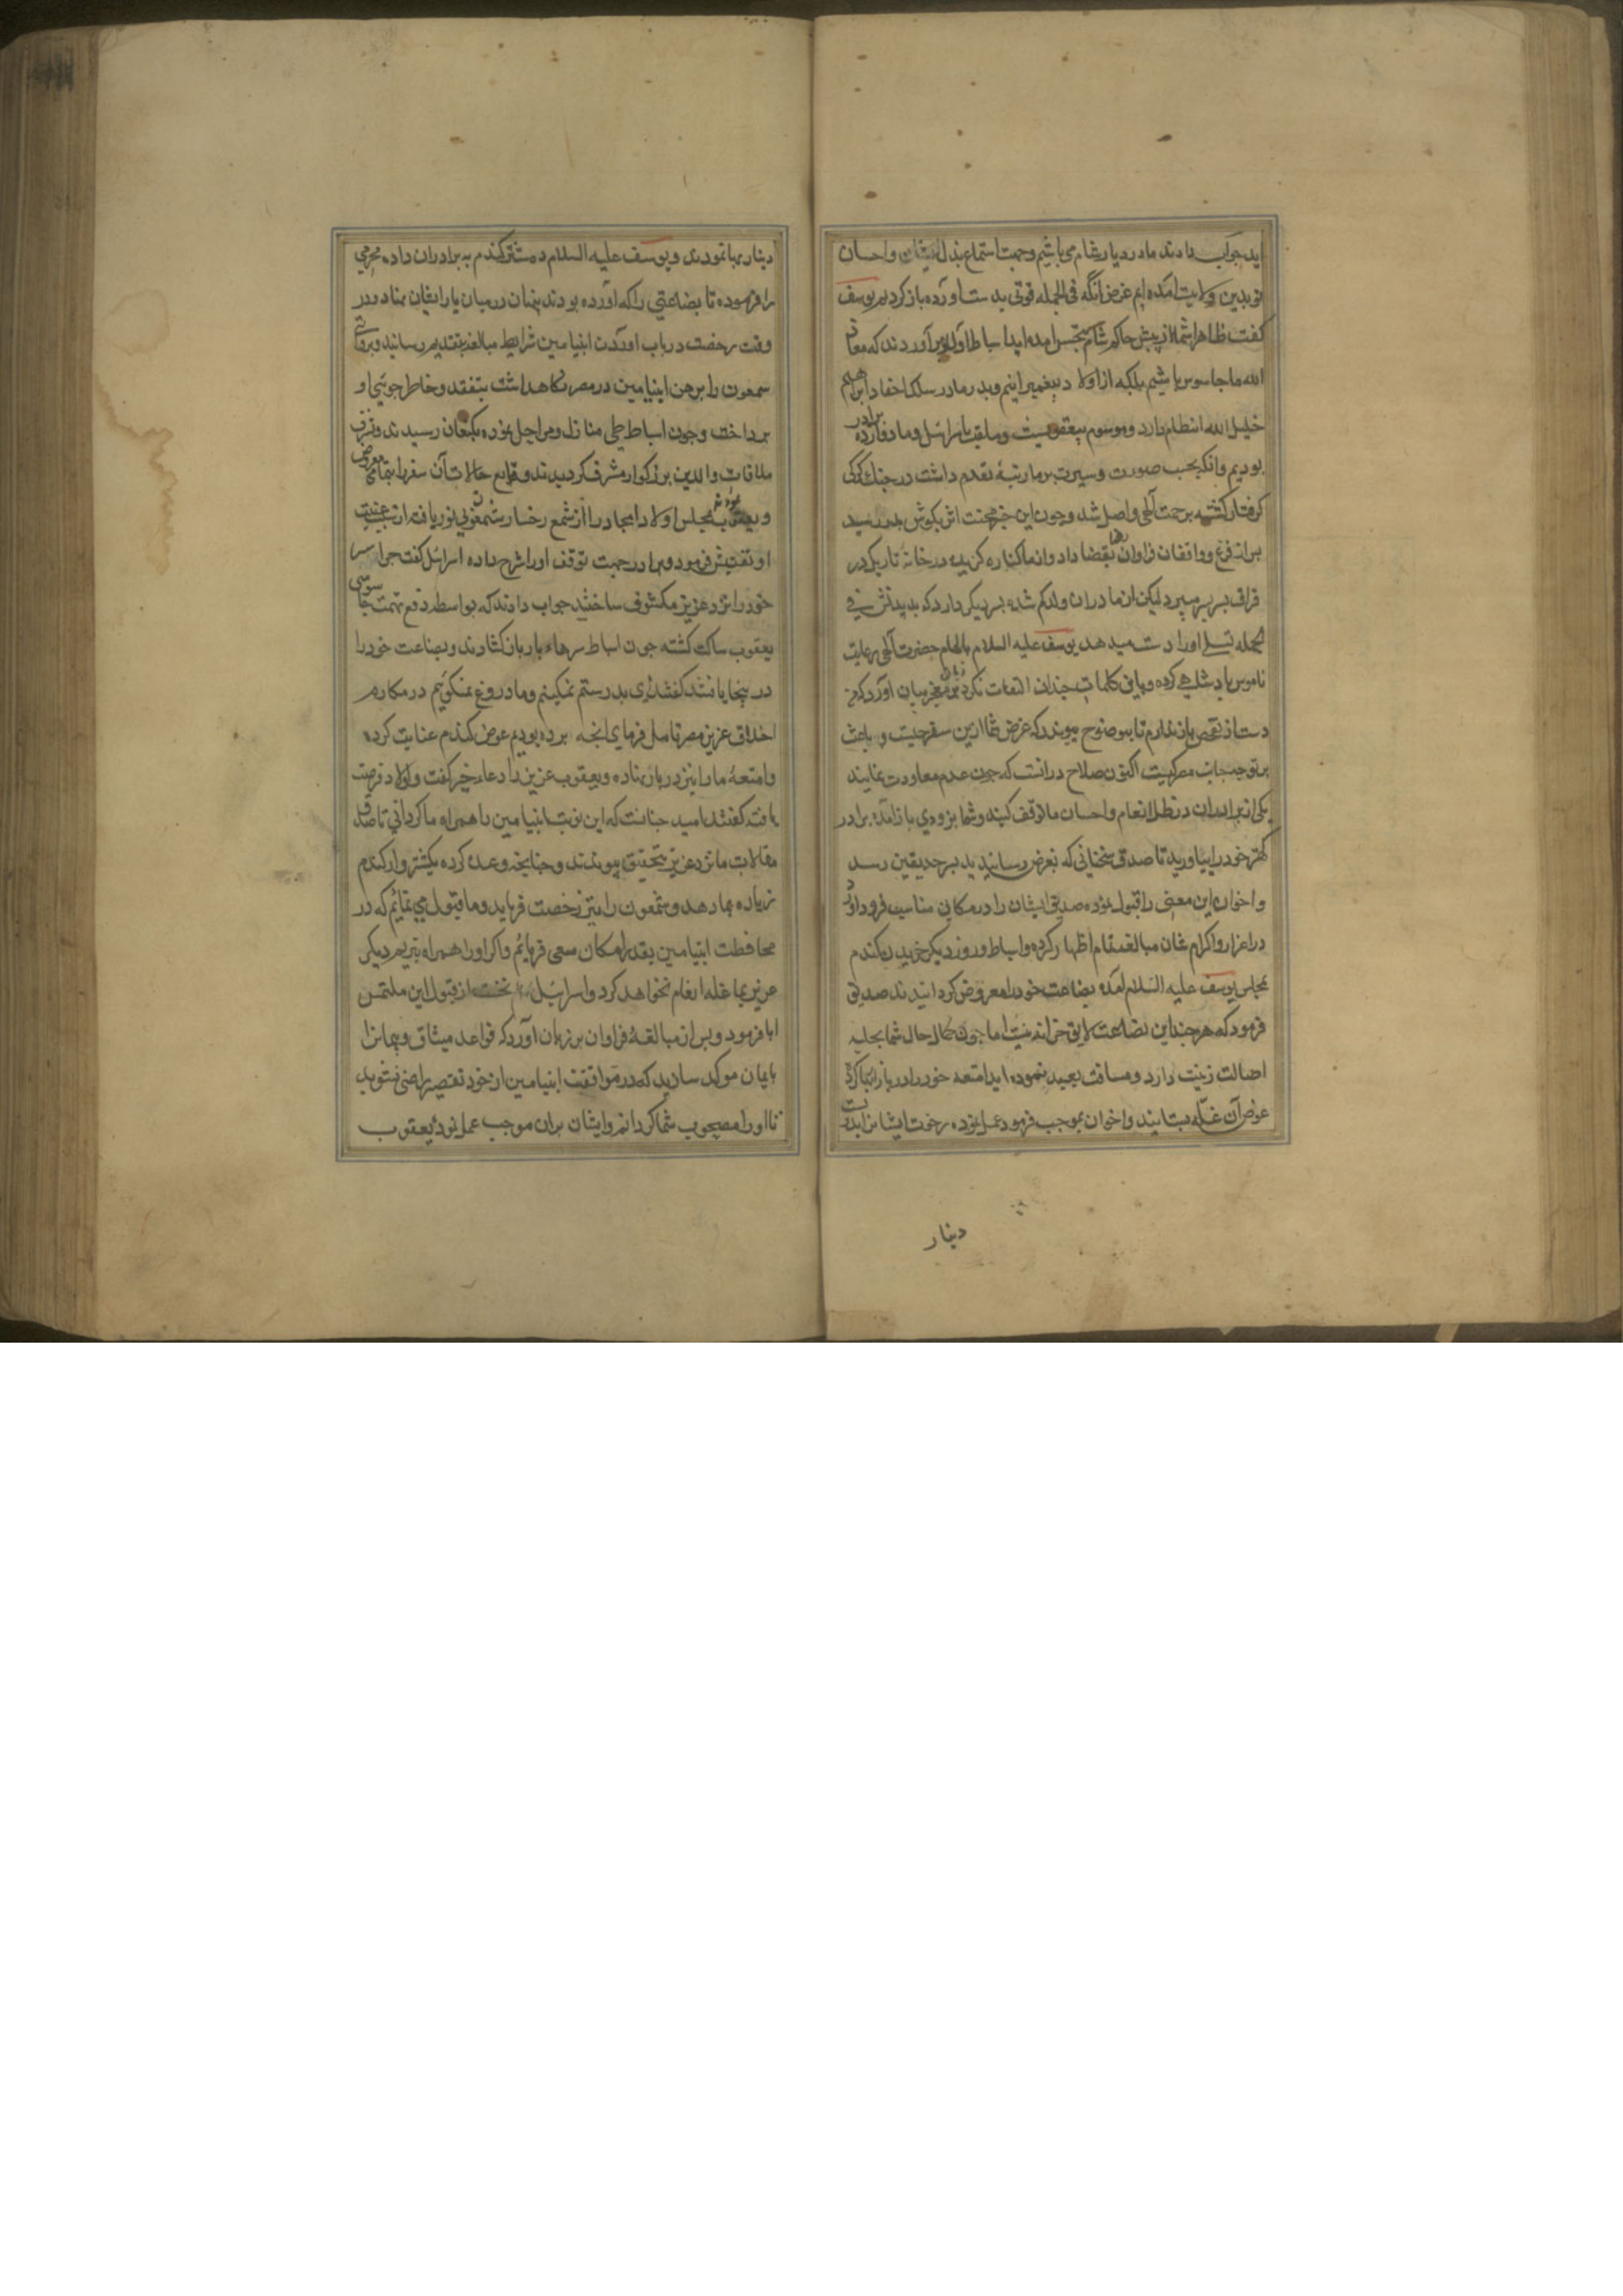 اید جواب دادند ما در دیار شام می باشیم و جهت استماع بذل ایشان و احسان
تو بدین ولایت آمده ایم غرض آنکه فی الجمله قوتی بدست آورده باز کردیم یوسف
کفت ظاهرا شما از پیش حاکم شام بتجسس آمده اید اسباط آواز برآوردند که معاذ
الله ما جاسوس باشیم بلکه از اولاد پیغمبرانیم و پدر ما در سلک احفاد ابراهیم
خلیل الله انتظام دارد و موسوم بیعقوبست و ملقب باسرائیل و ما دوازده برادر
بودیم و آنکه بحسب صورت و سیرت بر ما رتبهٔ تقدم داشت در چنک کرکی
کرفتار کشته برحمت آلهی واصل شد و چون این خبر محنت اثر بکوش پدر رسید
فراوان بقضا داد و از ما کناره کزیده در خانهٔ تاریک در
فراق بسر میبرد لیکن از مادر ان ولد کم شده پسر دیکر دارد که بدیدنش فی
الجمله تسلی او را دست میدهد یوسف علیه السلام بالهام حضرت آلهی رعایت
ناموس پادشاهی کرده و باین کلمات چندان التفات نکرد و بر زبان معجز بیان آورد که من
دست از تفحص باز ندارم تا بوضوح پیوندد که غرض شما ازین سفر چیست و باعث
بر توجه بجانب مصر کیست اکنون صلاح در آنست که چون عدم معاودت نمایند
یکی از برادران در ظل انعام و احسان ما توقف کنید و شما بزودی باز آمده برادر
کهتر خود را بیاورید تا صدق سخنانی که بعرض رسانیدید بسرحد یقین رسد
و اخوان این معنی را قبول نموده صدیق ایشان را در مکانی مناسب فرود آورد
در اعزاز و اکرام شان مبالغه تمام اظهار کرده و اسباط روز دیکر خریدن کندم
بمجلس یوسف علیه السلام آمده بضاعت خود را معروض کردانیدند صدیق
فرمود که هر چند این بضاعت لایق خزانه نیست اما چون کمال حال شما بحلیه
اصالت زینت دارد و مسافت بعید نموده اید امتعه خود را در بار انبار کرده
عوض آن غله بستانید و اخوان بموجب فرموده عمل نموده رخوت ایشان را بدست
دینار
دینار بها نمودند و یوسف علیه السلام ده شتر کندم به برادران داده محرمی
را فرموده تا بضاعتی را که آورده بودند پنهان در میان بار ایشان نهاد و در
وقت رخصت در باب آوردن ابنیامین شرایط مبالغه بتقدیم رسانید و بروایتی
سمعون را برهن ابنیامین در مصر نکاهداشت بتفقد و خاطر جوئی او
پرداخت و چون اسباط طی منازل و مراحل نموده بکنعان رسیدند و بشرف
ملاقات والدین بزرکوار مشرف کردیدند وقایع حالات آن سفر را بتمامی معروض
و یعقوب مجلس اولاد امجاد را از شمع رخسار شمعون بی نور یافته از سبب غیبت
او تفتیش فرمود و برادر جهت توقف او را شرح داده اسرائیل کفت چرا سر
خود را نزد عزیز مکشوف ساختید جواب دادند که بواسطه دفع تهمت جاسوسی
یعقوب ساکت کشته چون اسباط سرهاء بار بازکشادند و بضاعت خود را
در آنجا یافتند کفتند ای پدر ستم نمکینیم و ما دروغ نمیکوئیم در مکارم
اخلاق عزیز مصر تامل فرمای آنچه برده بودیم عوض کندم عنایت کرده
و امتعهٔ ما را نیز در بار نهاده و یعقوب عزیز را دعاء خیر کفت و اولاد فرصت
یافته کفتند امید چنانست که این نوبت ابنیامین را همراه ما کردانی تا صدق
مقالات ما نزد عزیز بتحقیق پیوندد و چنانچه وعده کرده یکشتروار کندم
زیاده بما دهد و شمعون را نیز رخصت فرماید و ما قبول می نمائیم که در
محافظت ابنیامین بقدر امکان سعی فرمائیم و اکر او را همراه نبریم دیکر
عزیز بما غله انعام نخواهد کرد و اسرائیل نخست از قبول این ملتمس
ابا فرمود و پس از مبالغهٔ فراوان بر زبان آورد که قواعد میثاق و پیمان را
بایمان موکد سازید که در موافقت ابنیامین از خود تقصیر راضی نشوید
تا او را مصحوب شما کردانم و ایشان بران موجب عمل نموده یعقوب